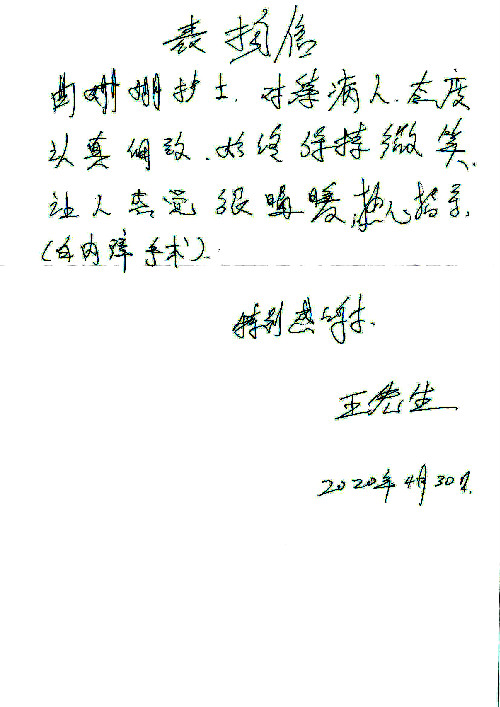 表扬信
曲姗姗护士,对待病人,态度
认真细致,始终保持微笑,
让人感觉很温暖,热心指导,
(白内障手术)。
特别感谢.
王先生
2020年4月30日.